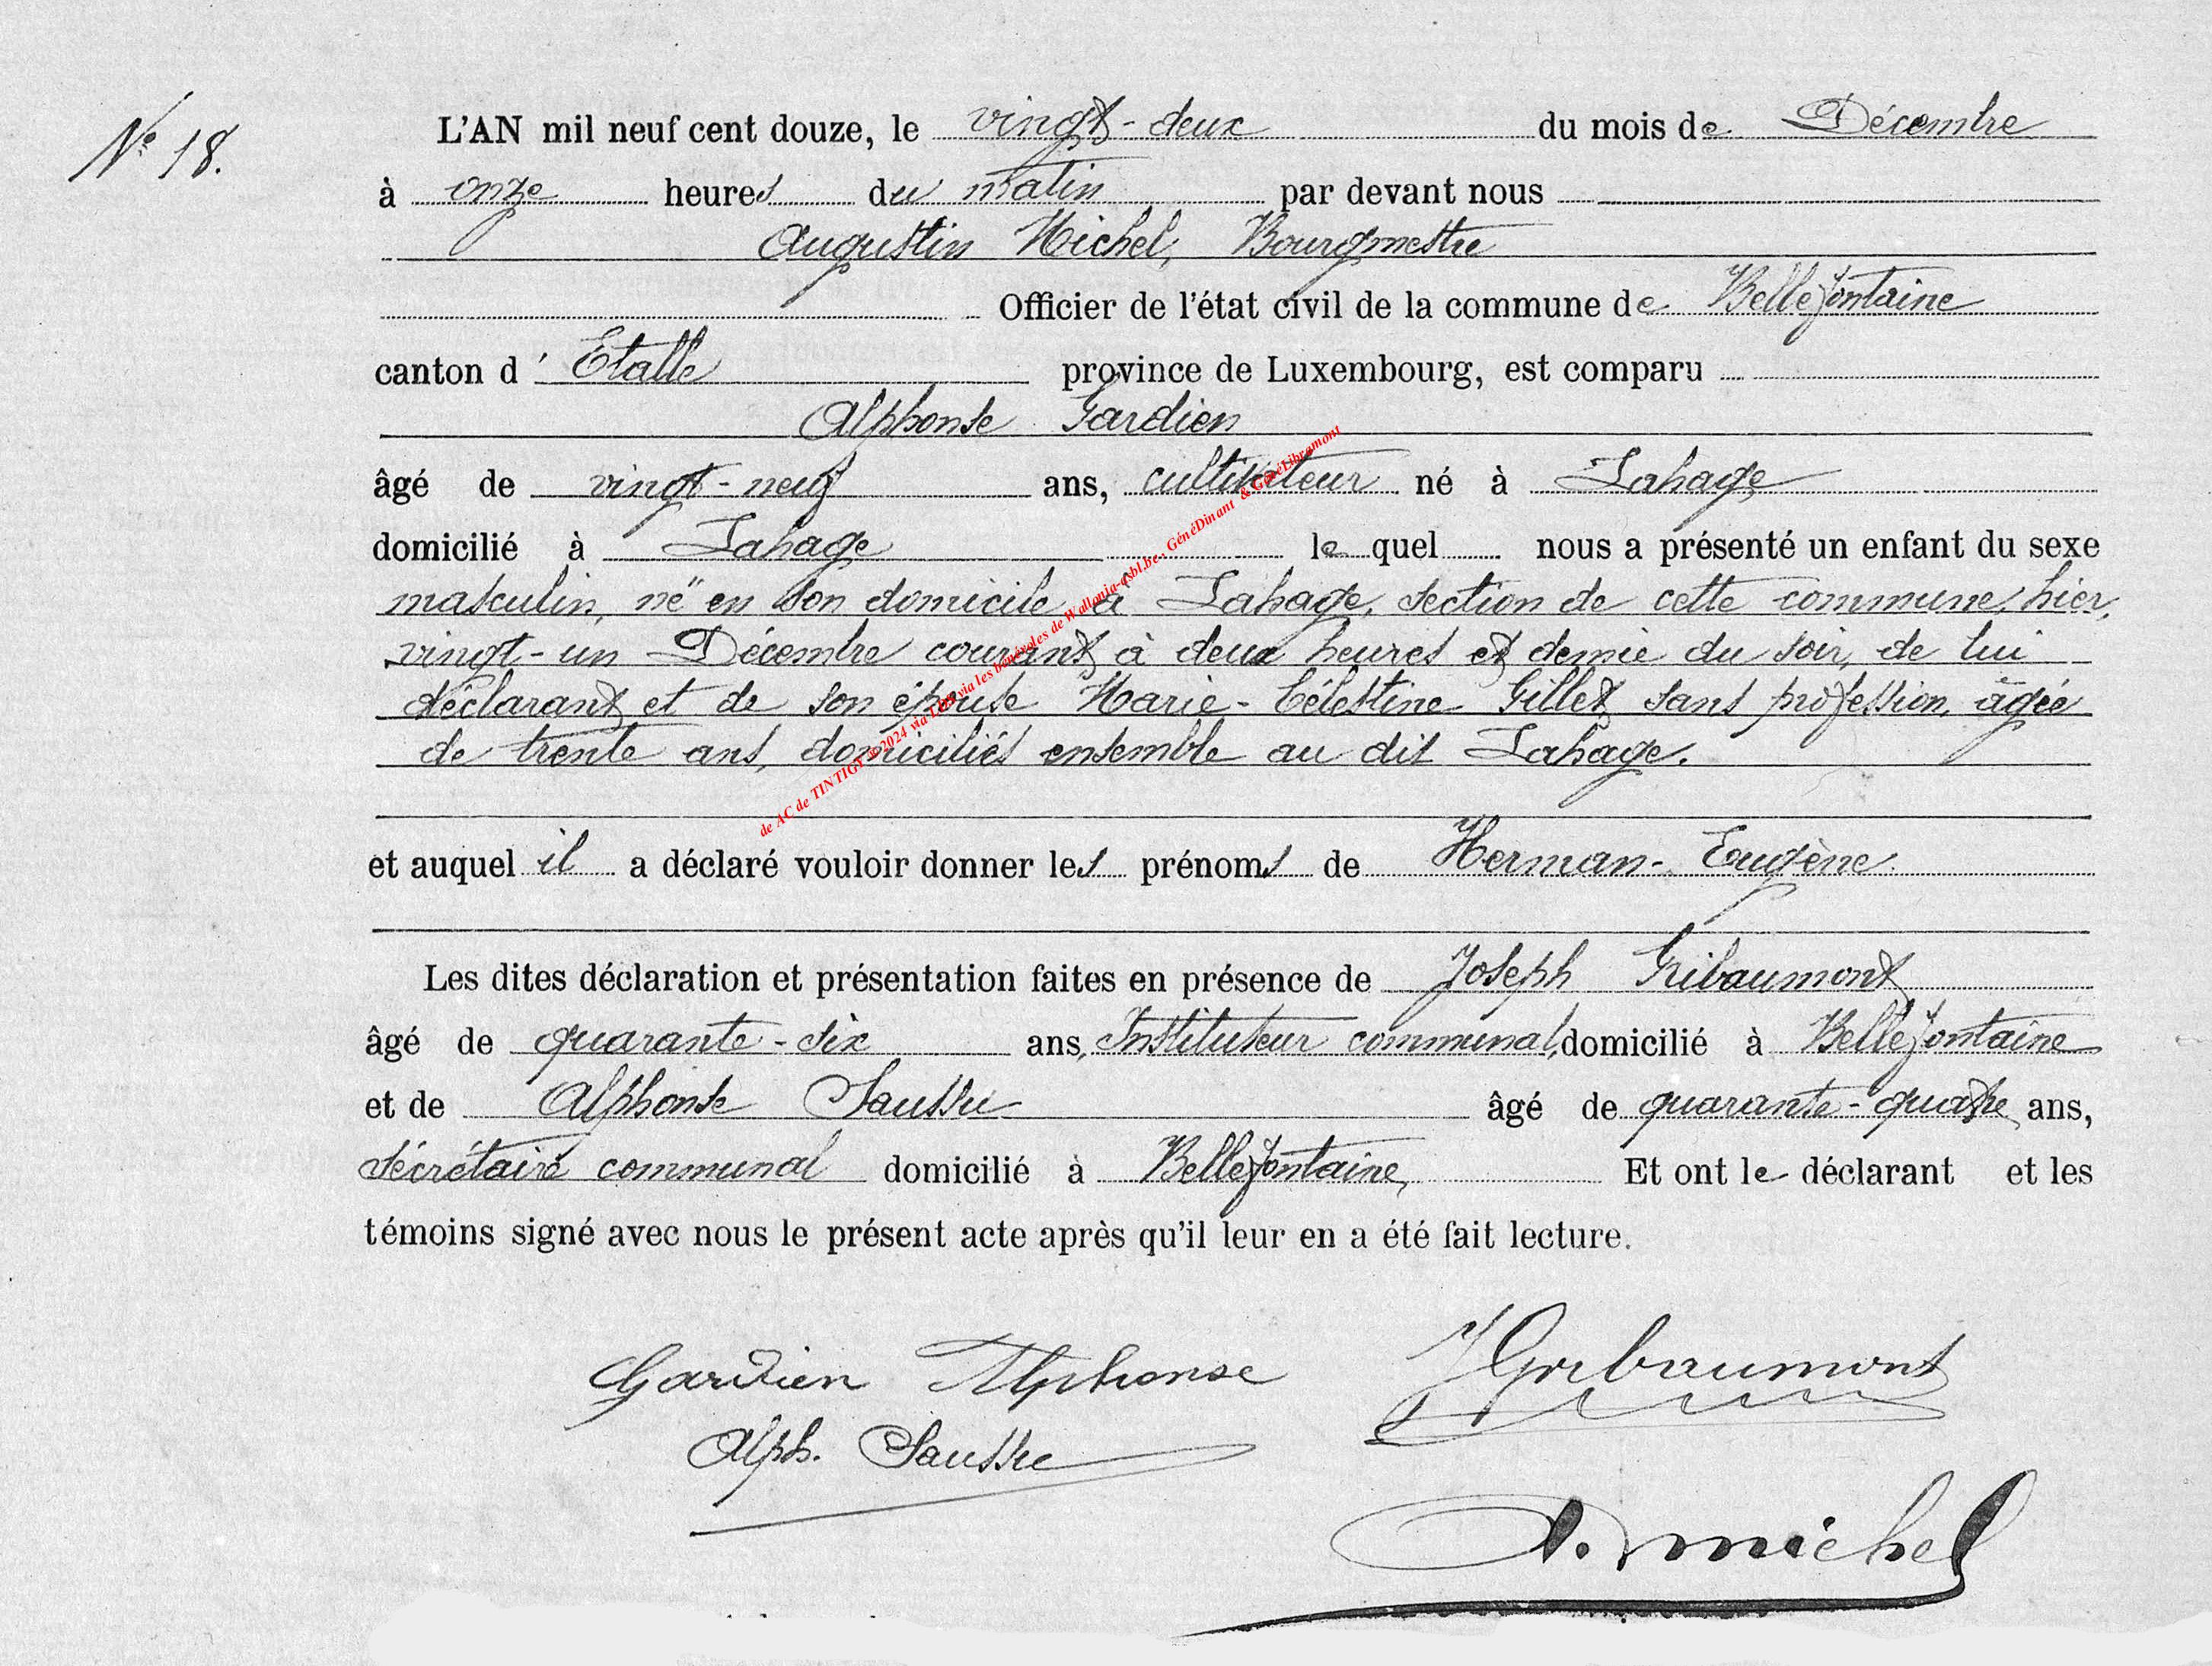 Nº 18.
L'AN mil neuf cent douze, le vingt-deux du mois de Décembre
à onze heures du matin par devant nous
Augustin Michel, Bourgmestre
Officier de l'état civil de la commune de Bellefontaine
canton d' Etalle province de Luxembourg, est comparu
Alphonse Gardien
âgé de vingt-neuf ans, cultivateur né à Lahage
domicilié à Lahage le quel nous a présenté un enfant du sexe
masculin, né en son domicile à Lahage, section de cette commune, hier,
vingt-un Décembre courant à deux heures et demie du soir, de lui
déclarant et de son épouse Marie-Célestine Gillet sans profession, âgée
de trente ans, domiciliés ensemble au dit Lahage.
et auquel il a déclaré vouloir donner les prénoms de Herman-Eugène
Les dites déclaration et présentation faites en présence de Joseph Gribaumont
âgé de quarante-six ans, Instituteur communal, domicilié à Bellefontaine
et de Alphonse Saussu âgé de quarante-quatre ans,
Sécrétaire communal domicilié à Bellefontaine, Et ont le déclarant et les
témoins signé avec nous le présent acte après qu'il leur en a été fait lecture.
Gardien Alphonse JGribaumont
Alph. Saussu
A. michel
de AC de TINTIGNY © 2024 via les bénévoles de Wallonia-asbl.be: GénéDinant & GénéLibramont